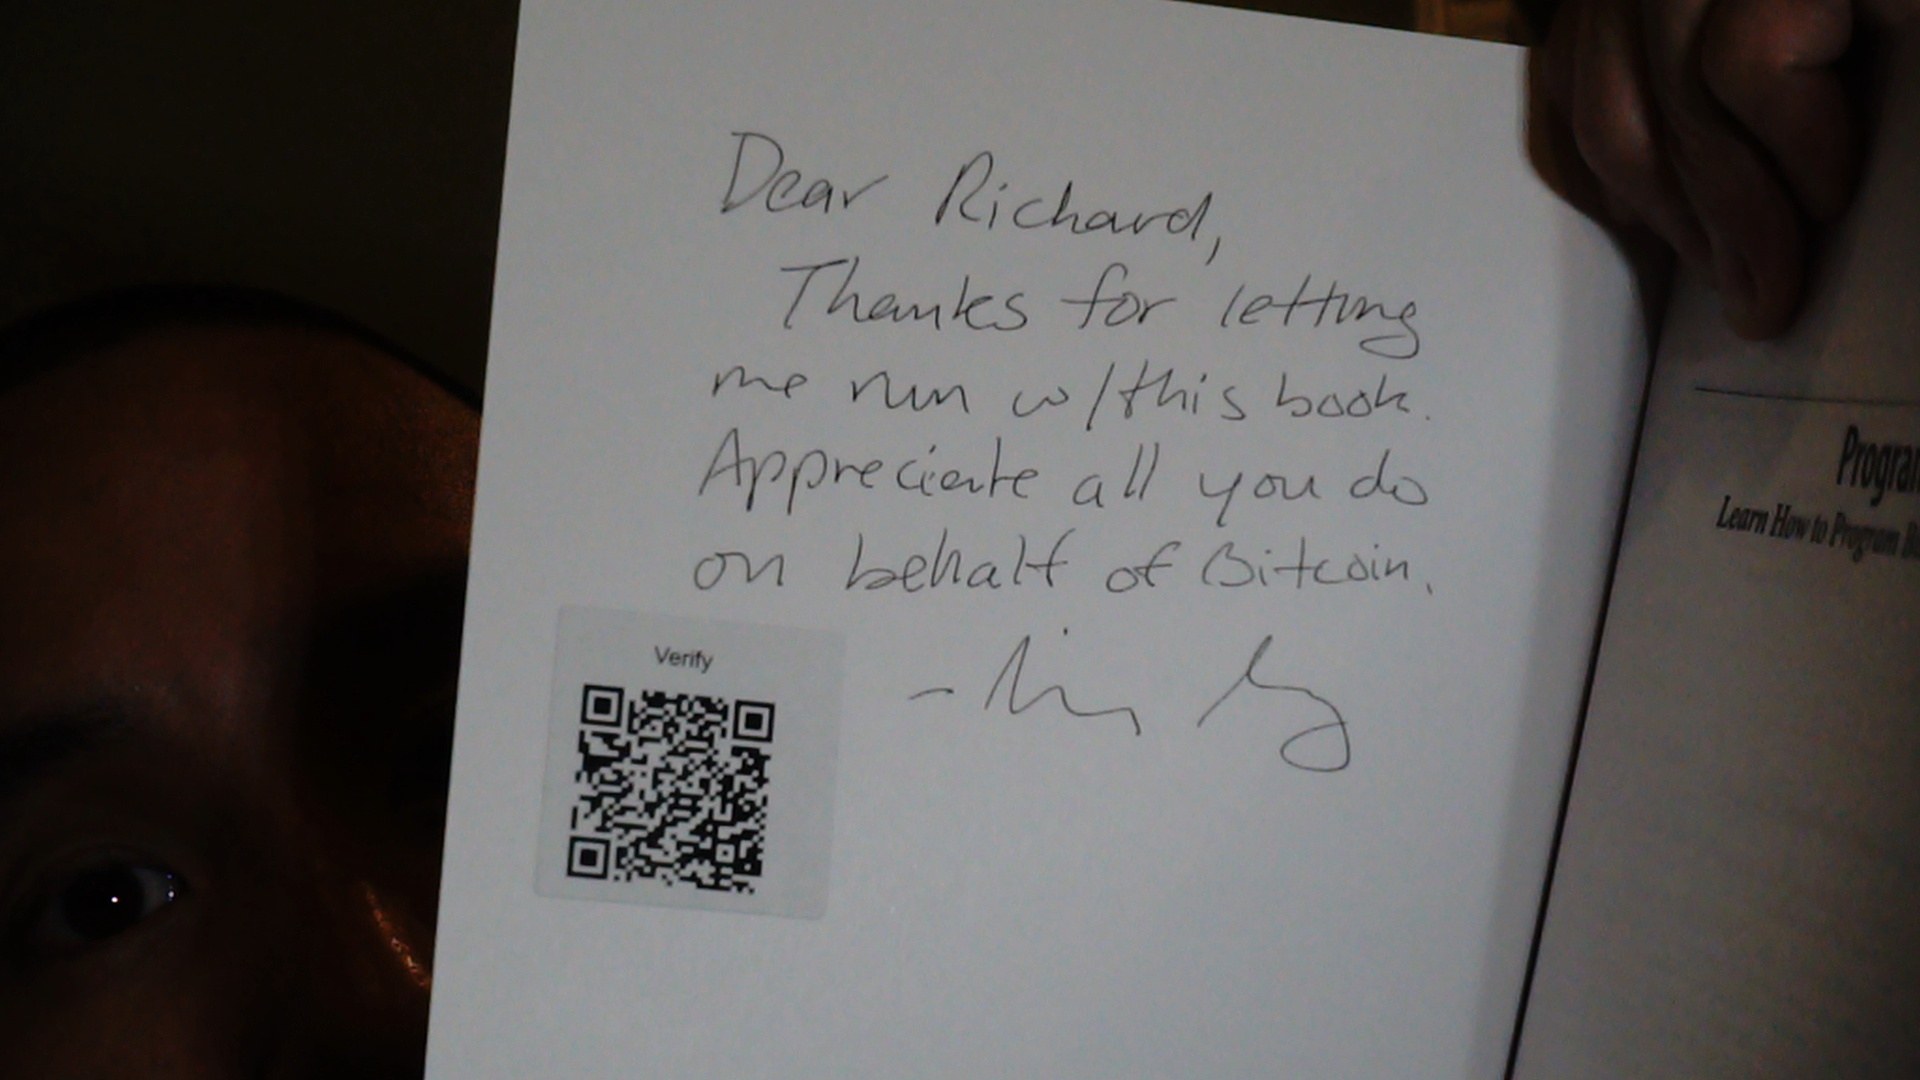 Dear Richard,
Thanks for letting
me run w/this book.
Appreciate all you do
on behalf of Bitcoin.
Verify
Learn How to Program